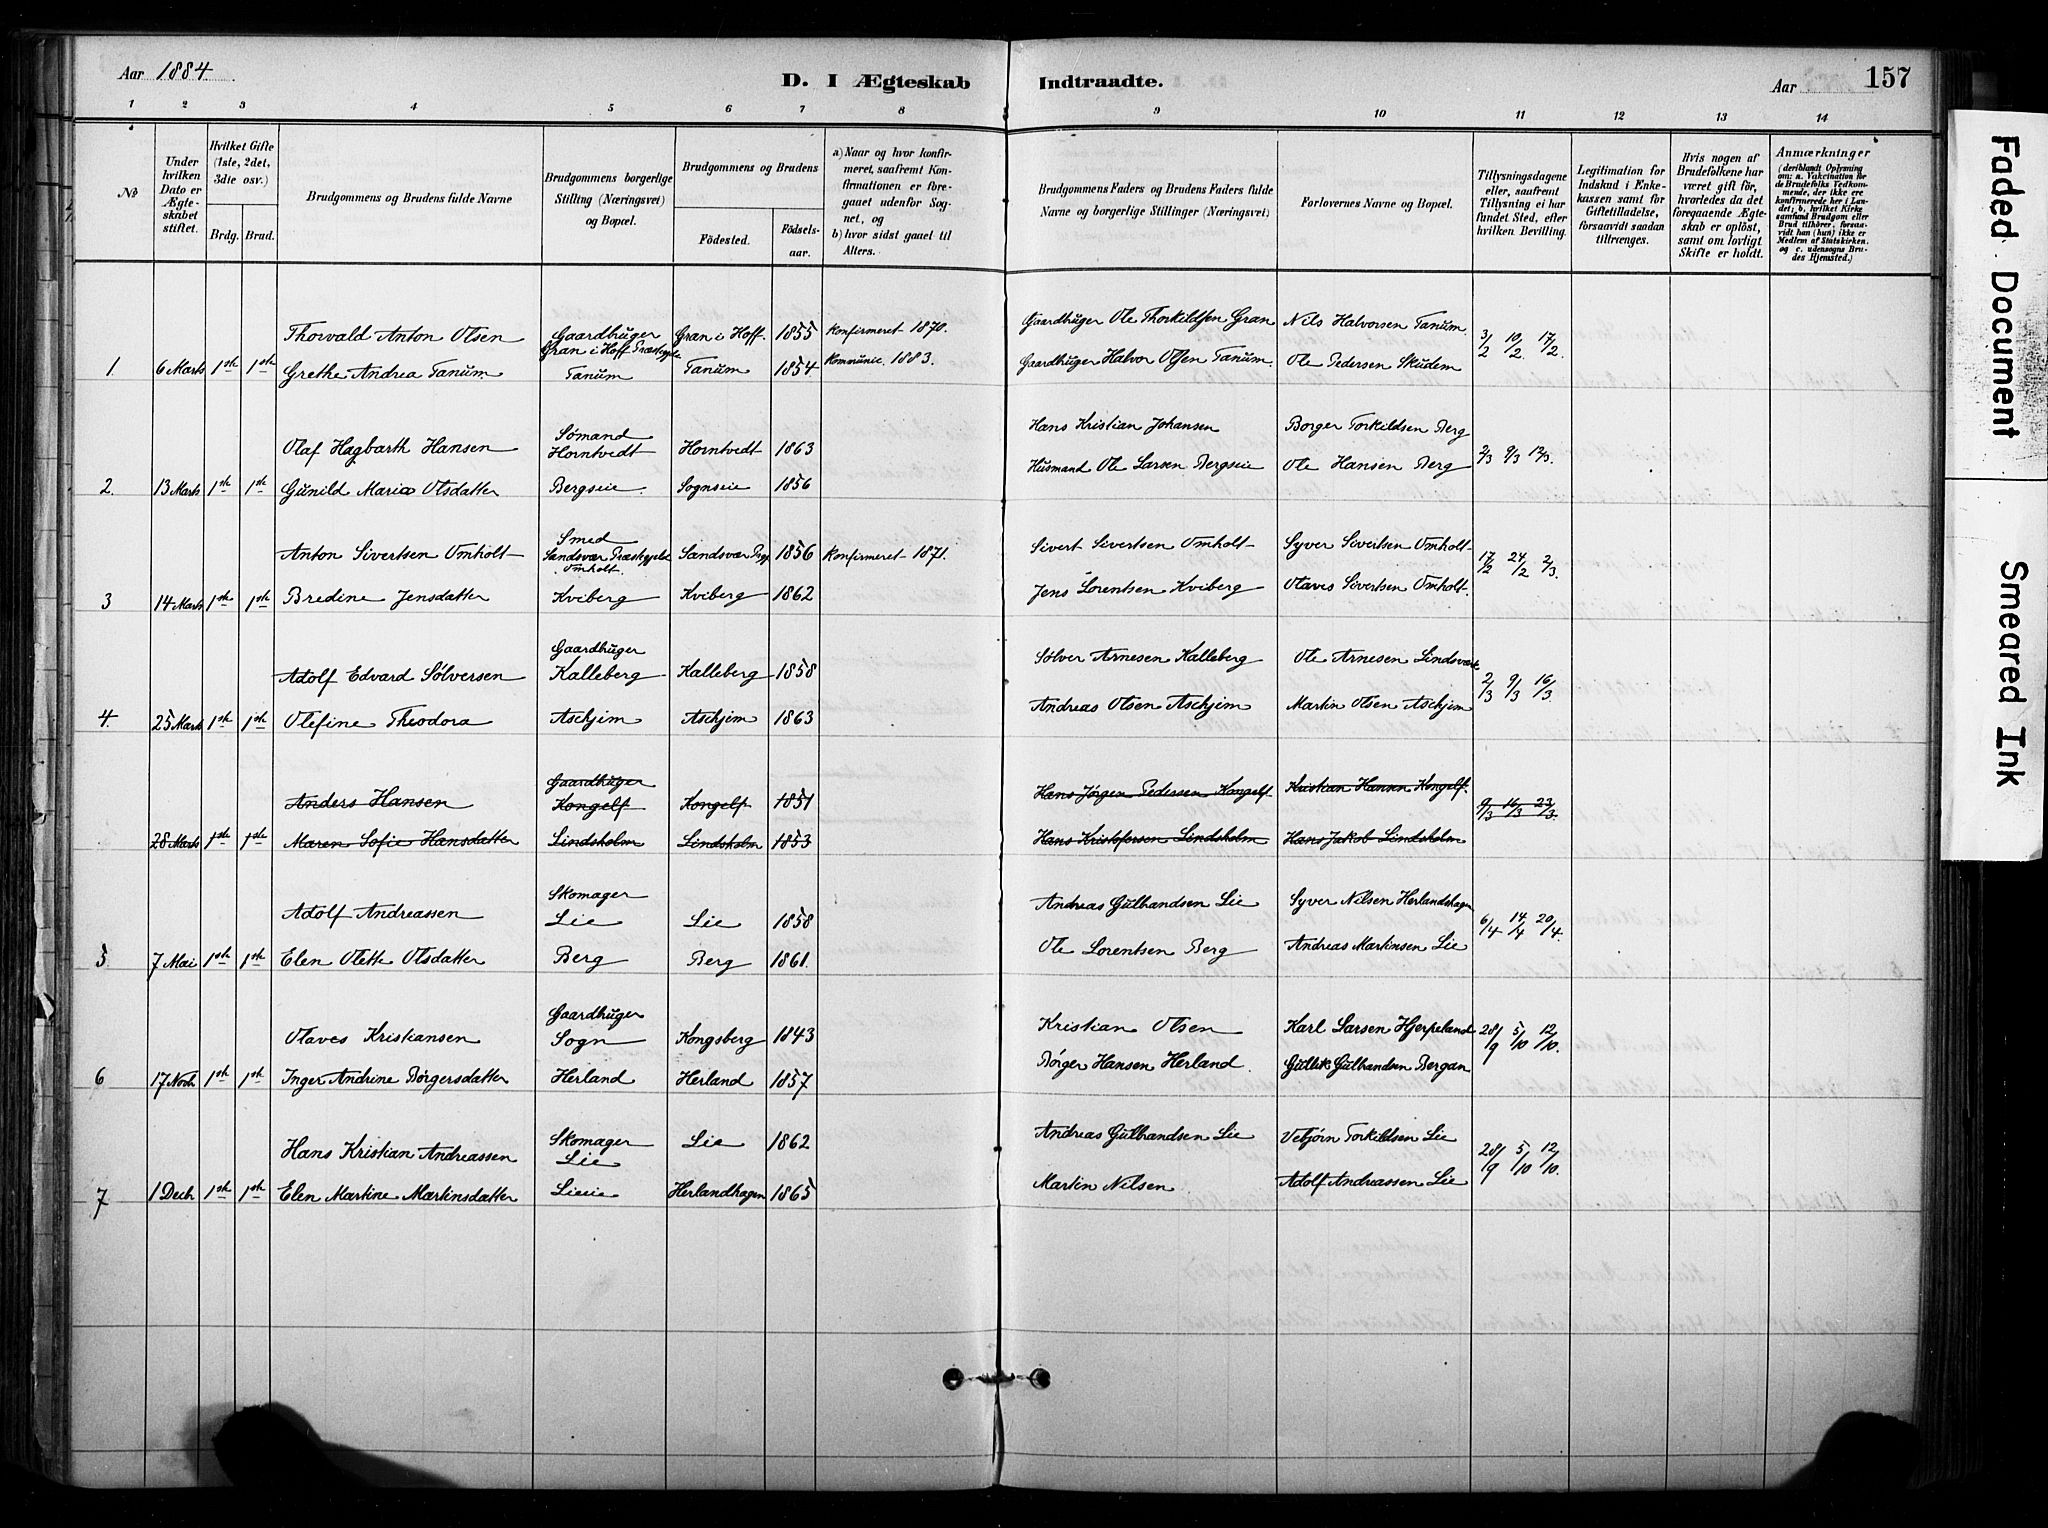 Aar 1884. D. I Ægteskab Indtraadte. Aar 157
1 2 3 4 5 6 7 8 9 10 11 12 13 14
No
Under hvilken Dato er Ægteskabet stiftet.
Hvilket Gifte (1ste, 2det, 3die osv.)
Brdg. Brud.
Brudgommens og Brudens fulde Navne
Brudgommens borgerlige Stilling (Næringsvei) og Bopæl.
Brudgommens og Brudens
Födested. Födselsaar.
a) Naar og hvor konfirmeret, saafremt Konfirmationen er foregaaet udenfor Sognet, og
b) hvor sidst gaaet til Alters.
Brudgommens Faders og Brudens Faders fulde Navne og borgerlige Stillinger (Næringsvei)
Forlovernes Navne og Bopæl.
Tillysningsdagene eller, saafremt Tillysning ei har fundet Sted, efter hvilken Bevilling.
Legitimation for Indskud i Enkekassen samt for Giftetilladelse, forsaavidt saadan tiltrænges.
Hvis nogen af Brudefolkene har været gift för, hvorledes da det foregaaende Ægteskab er oplöst, samt om lovligt Skifte er holdt.
Anmærkninger (deriblandt Oplysning om: a. Vakcination for de Brudefolks Vedkommende, der ikke ere konfirmerede her i Landet; b. hvilket Kirkesamfund Brudgom eller Brud tilhörer, forsaavidt han (hun) ikke er Medlem af Statskirken, og c. udensogns Brudes Hjemsted.)
Thorvald Anton Olsen Gaardbruger Gran i Hoff Præstegjeld Gran i Hoff. 1855 Konfirmeret 1870. Gaardbruger Ole Thorkildsen Gran Nils Halvorsen Tanum. 3/2 10/2 17/2.
1 6 Marts 1ste 1ste Grethe Andrea Tanum. Tanum Tanum 1854 Kommunic. 1883. Gaardbruger Halvor Olsen Tanum. Ole Pedersen Skudem
Olaf Hagbarth Hansen Sømand Horntvedt Horntvedt 1863 Hans Kristian Johansen Borger Torkildsen Berg 2/3 9/3
2. 13 Marts 1ste 1ste Gunild Maria Olsdatter Bergseie. Sognseie 1856 Husmand Ole Larsen Bergseie Ole Hansen Berg
Anton Sivertsen Omholt Smed Sandsvær Præstegjeld Omholt. Sandsvær 1856 Konfirmeret 1871. Sivert Sivertsen Omholt Syver Sivertsen Omholt 17/2 24/2 2/3.
3 14 Marts 1ste 1ste Bredine Jensdatter Kviberg Kviberg 1862 Jens Lorentsen Kviberg Olaves Sivertsen Omholt.
Adolf Edvard Sølversen Gaardbruger Kalleberg Kalleberg 1858 Sølver Arnesen Kalleberg Ole Arnesen Lindsværk 2/3 9/3 16/3
4. 25 Marts 1ste 1ste Olefine Theodora Aschjim Aschjim 1863 Andreas Olsen Aschjim Martin Olsen Aschjim
Anders Hansen Gaardbruger Kongelf Kongelf 1851 Hans Jørgen Pedersen Kongelf Kristian Hansen Kongelf. 9/3 16/3 23/3.
28 Marts 1ste 1ste Maren Sofie Hansdatter Lindsholm Lindsholm 1853 Hans Kristofersen Lindsholm Hans Jakob Lindsholm
Adolf Andreassen Skomager Lie Lie 1858 Andreas Gulbrandsen Lie Syver Nilsen Herlandshagen 6/4 14/4 20/4.
5 7 Mai 1ste 1ste Elen Olette Olsdatter Berg Berg 1861. Ole Lorentsen Berg Andreas Martinsen Lie
Olaves Kristiansen Gaardbruger Sogn Kongsberg 1843 Kristian Olsen Karl Larsen Hjerpeland 28/9 5/10 12/10.
6 17 Novb 1ste 1ste Inger Andrine Børgersdatter Herland Herland 1857 Børger Hansen Herland. Gullik Gulbrandsen Bergan
Hans Kristian Andreassen Skomager Lie Lie 1862 Andreas Gulbrandsen Lie Vebjørn Torkildsen Lie 28/9 5/10 12/10.
7 1 Decb 1ste 1ste Elen Martine Martinsdatter Lieeie Herlandhagen 1865 Martin Nilsen Adolf Andreassen Lie
Faded Document
Smeared Ink